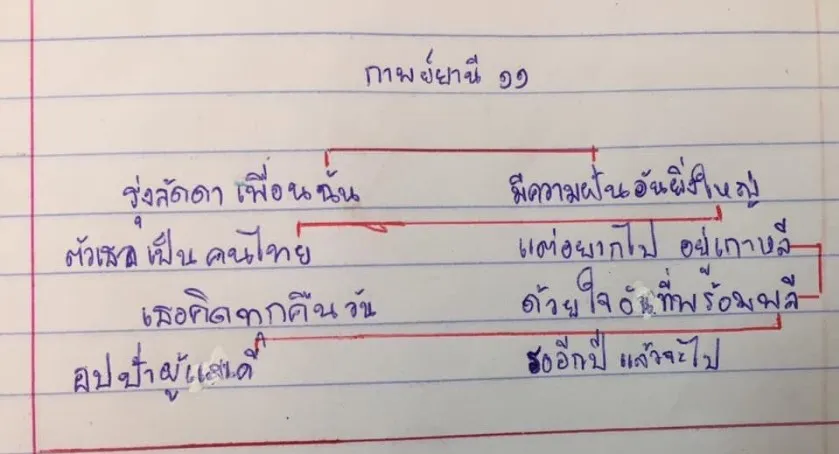 กาพย์ยานี ๑๑
รุ่งลัดดา เพื่อนฉัน มีความฝันอันยิ่งใหญ่
ตัวเธอ เป็น คนไทย แต่อยากไป อยู่เกาหลี
เธอคิดทุกคืน วัน ด้วยใจ อันที่พร้อมพลี
อปป้าผู้แสนดี รออีกปี แล้วจะไป